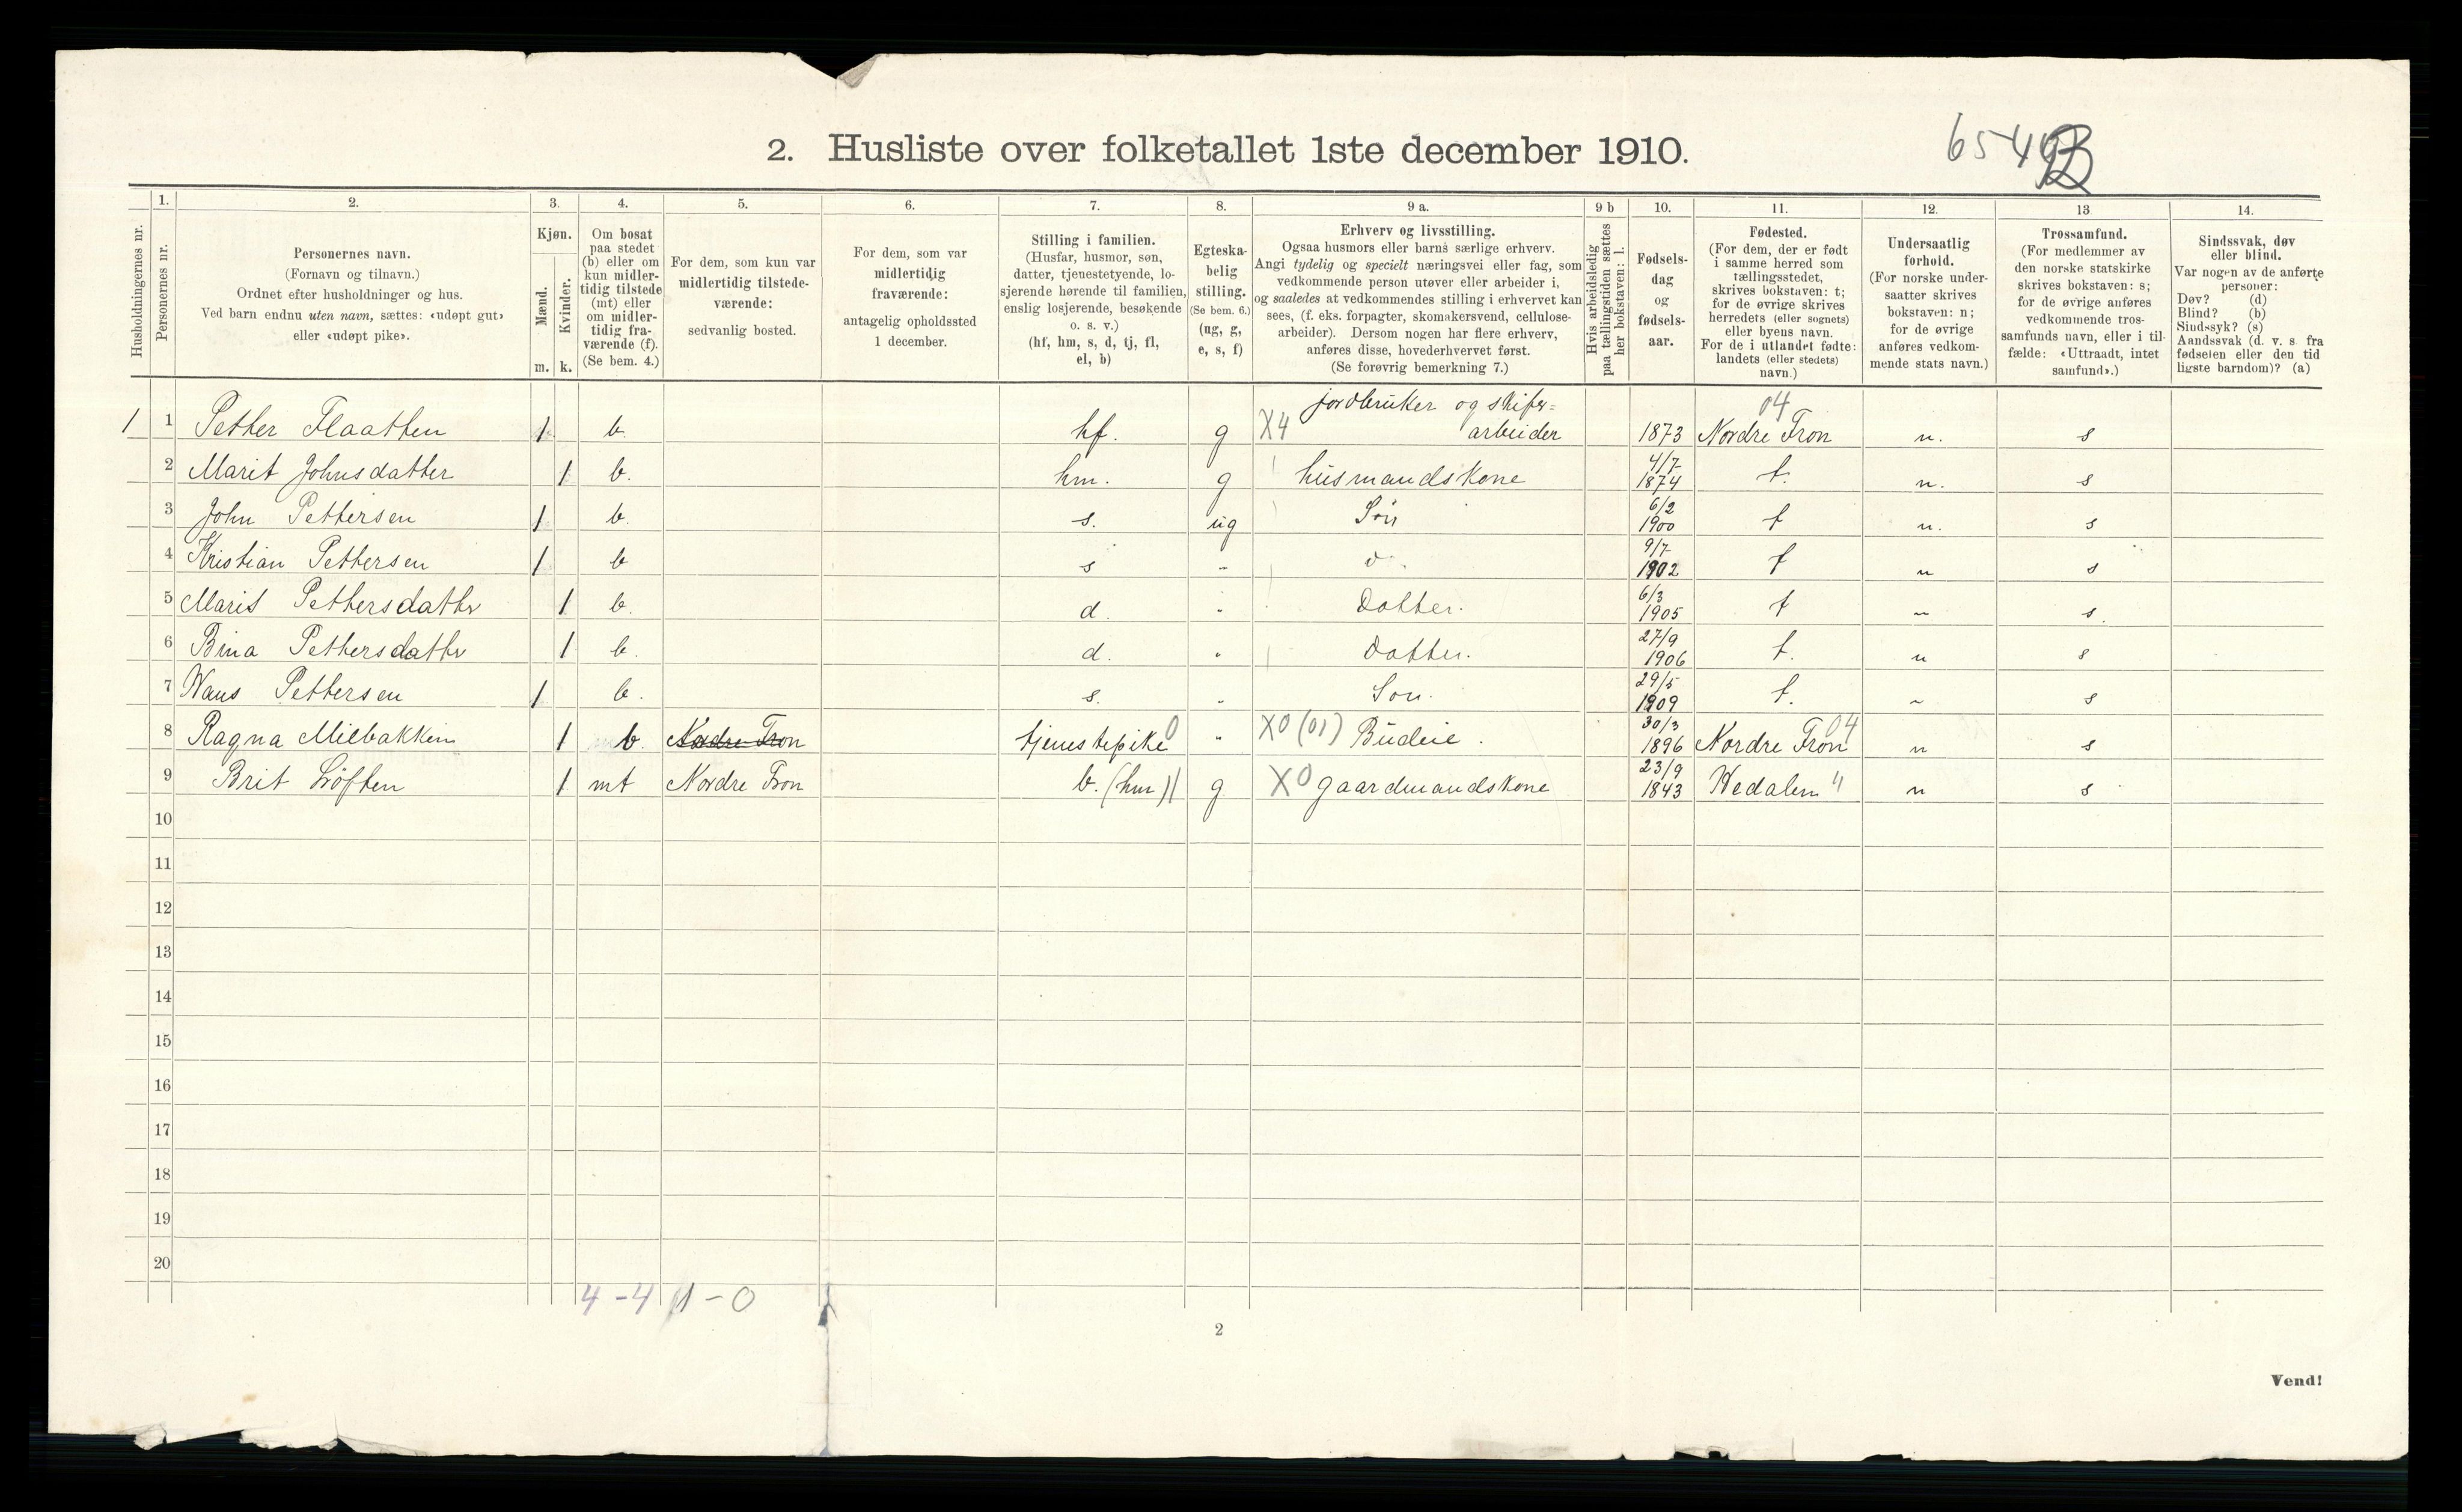 6549 B
2. Husliste over folketallet 1ste december 1910.
Husholdningernes nr.
1. Personernes nr.
2. Personernes navn.
(Fornavn og tilnavn.)
Ordnet efter husholdninger og hus.
Ved barn endnu uten navn, sættes: «udøpt gut»
eller «udøpt pike».
3. Kjøn.
Mænd. m.
Kvinder. k.
4. Om bosat
paa stedet
(b) eller om
kun midler-
tidig tilstede
(mt) eller
om midler-
tidig fra-
værende (f).
(Se bem. 4.)
5. For dem, som kun var
midlertidig tilstede-
værende:
sedvanlig bosted.
6. For dem, som var
midlertidig
fraværende:
antagelig opholdssted
1 december.
7. Stilling i familien.
(Husfar, husmor, søn,
datter, tjenestetyende, lo-
sjerende hørende til familien,
enslig losjerende, besøkende
o. s. v.)
(hf, hm, s, d, tj, fl,
el, b)
8. Egteska-
belig
stilling.
(Se bem. 6.)
(ug, g,
e, s, f)
9 a. Erhverv og livsstilling.
Ogsaa husmors eller barns særlige erhverv.
Angi tydelig og specielt næringsvei eller fag, som
vedkommende person utøver eller arbeider i,
og saaledes at vedkommendes stilling i erhvervet kan
sees, (f. eks. forpagter, skomakersvend, cellulose-
arbeider). Dersom nogen har flere erhverv,
anføres disse, hovederhvervet først.
(Se forøvrig bemerkning 7.)
9 b Hvis arbeidsledig
paa tællingstiden sættes
her bokstaven: l.
10. Fødsels-
dag
og
fødsels-
aar.
11. Fødested.
(For dem, der er født
i samme herred som
tællingsstedet,
skrives bokstaven: t;
for de øvrige skrives
herredets (eller sognets)
eller byens navn.
For de i utlandet fødte:
landets (eller stedets)
navn.)
12. Undersaatlig
forhold.
(For norske under-
saatter skrives
bokstaven: n;
for de øvrige
anføres vedkom-
mende stats navn.)
13 Trossamfund.
(For medlemmer av
den norske statskirke
skrives bokstaven: s;
for de øvrige anføres
vedkommende tros-
samfunds navn, eller i til-
fælde: «Uttraadt, intet
samfund».)
14. Sindssvak, døv
eller blind.
Var nogen av de anførte
personer:
Døv? (d)
Blind? (b)
Sindssyk? (s)
Aandssvak (d. v. s. fra
fødselen eller den tid
ligste barndom)? (a)
jordbruker og skifer= 04
1 1 Petter Flaatten 1 b. hf. g X4 arbeider 1873 Nordre Fron n. s
2 Marit Johnsdatter 1 b. hm. g husmandskone 4/7 1874 t. n. s
3 John Pettersen 1 b. s. ug Søn 6/2 1900 t n. s
4 Kristian Pettersen 1 b s " do 9/7 1902 t n s
5 Marit Pettersdattr 1 b. d. " Datter. 6/3 1905 t " s.
6 Bina Pettersdattr 1 b. d. " Datter. 27/9 1906 t. n s
7 Hans Pettersen 1 b. s. " Søn. 29/5 1909 t. " s
8 Ragna Milbakken 1 b. Nordre Fron tjenestepike 0 " X0 (01) Budeie. 30/3 1896 Nordre Fron 04 n s
9 Brit Løften 1 mt Nordre Fron b. (hm) g X0 gaardmandskone 23/9 1843 Hedalen " n s
10
11
12
13
14
15
16
17
18
19
20
4-4 1-0
2
Vend!